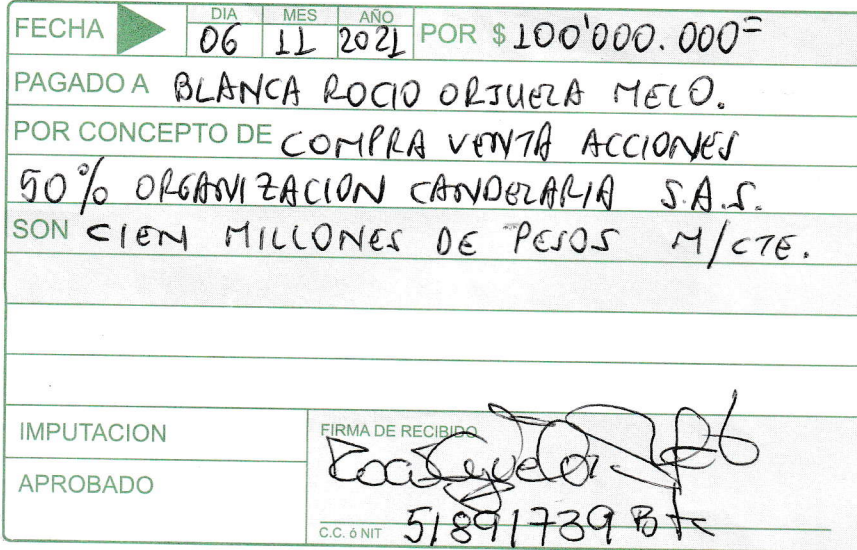 FECHA DIA 06 MES 11 AÑO 2021 POR $ 100'000.000=
PAGADO A BLANCA ROCIO ORJUELA MELO.
POR CONCEPTO DE COMPRA VENTA ACCIONES
50% ORGANIZACION CANDELARIA S.A.S.
SON CIEN MILLONES DE PESOS M/CTE.
IMPUTACION
FIRMA DE RECIBIDO
APROBADO
C.C. ó NIT 51891739 Bta